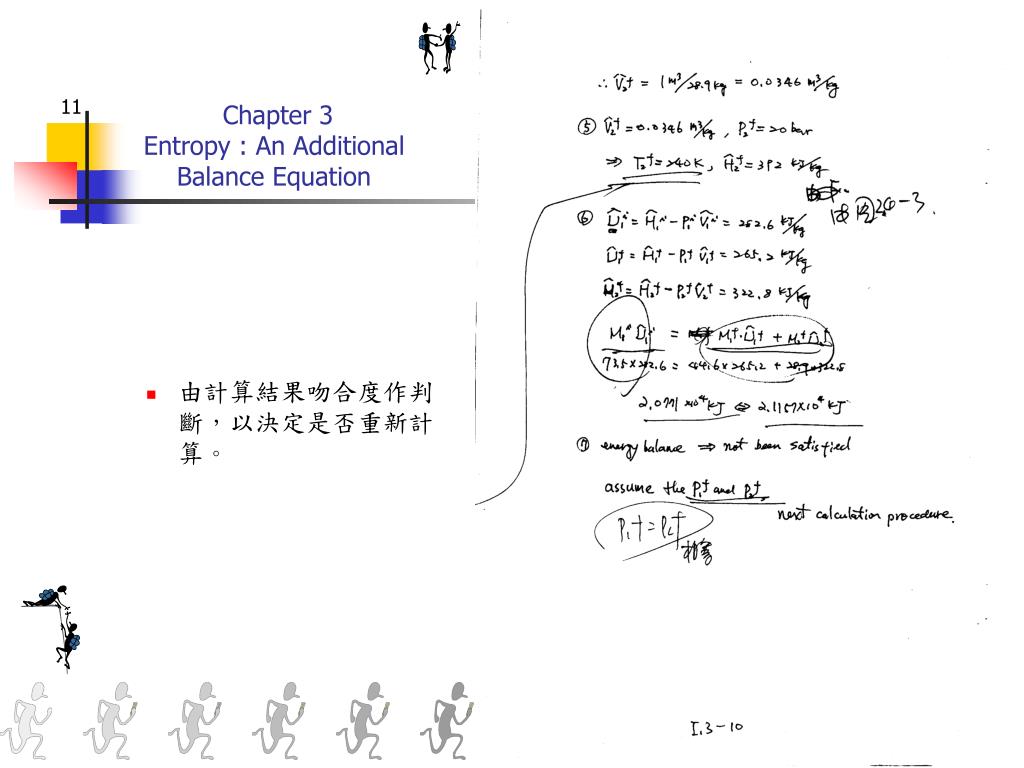 11
Chapter 3
Entropy : An Additional
Balance Equation
由計算結果吻合度作判
斷，以決定是否重新計
算。
∴ V̂₂ᶠ = 1 m³/28.9 kg = 0.0346 m³/kg
⑤ V̂₂ᶠ = 0.0346 m³/kg , P₂ᶠ = 20 bar
⇒ T₂ᶠ = 240K , Ĥ₂ᶠ = 392 KJ/kg
由圖2.4-3.
⑥ Û₁ⁱ = Ĥ₁ⁱ - P₁ⁱ V̂₁ⁱ = 282.6 KJ/kg
Û₁ᶠ = Ĥ₁ᶠ - P₁ᶠ V̂₁ᶠ = 265.2 KJ/kg
Û₂ᶠ = Ĥ₂ᶠ - P₂ᶠ V̂₂ᶠ = 322.8 KJ/kg
M₁ⁱ Û₁ⁱ = M₁ᶠ·Û₁ᶠ + M₂ᶠ Û₂ᶠ
73.5×282.6 = 44.6×265.2 + 28.9×322.8
2.0771×10⁴ KJ ⇔ 2.1157×10⁴ KJ
⑦ energy balance ⇒ not been satisfied
assume the P₁ᶠ and P₂ᶠ
next calculation procedure.
P₁ᶠ = P₂ᶠ
I.3-10